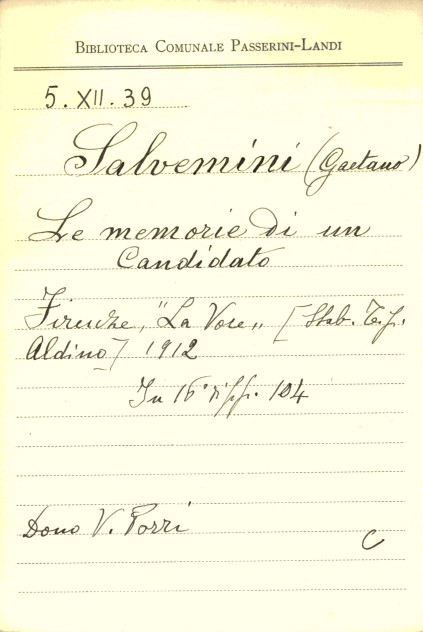 BIBLIOTECA COMUNALE PASSERINI-LANDI
5. XII. 39
Salvemini (Gaetano)
Le memorie di un
Candidato
Firenze, "La Voce„ [Stab. Tip.
Aldino] 1912
In 16° di pp. 104
Dono V. Porri
C